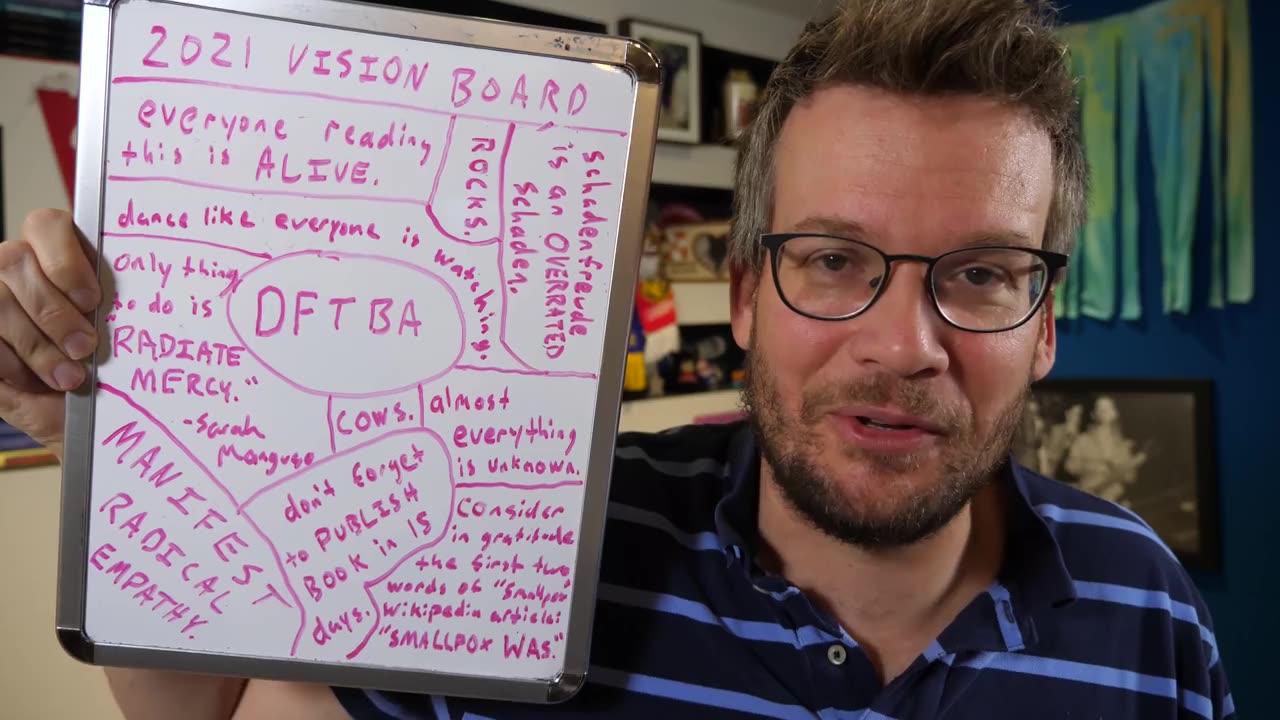 2021 VISION BOARD
everyone reading
this is ALIVE.
ROCKS.
schadenfreude
is an OVERRATED
schaden.
dance like everyone is watching.
only thing
to do is
"RADIATE
MERCY."
-Sarah
Manguso
DFTBA
COWS.
almost
everything
is unknown.
MANIFEST
RADICAL
EMPATHY.
don't forget
to PUBLISH
BOOK in 15
days.
consider
in gratitude
the first two
words of "Smallpox"
wikipedia article:
"SMALLPOX WAS."